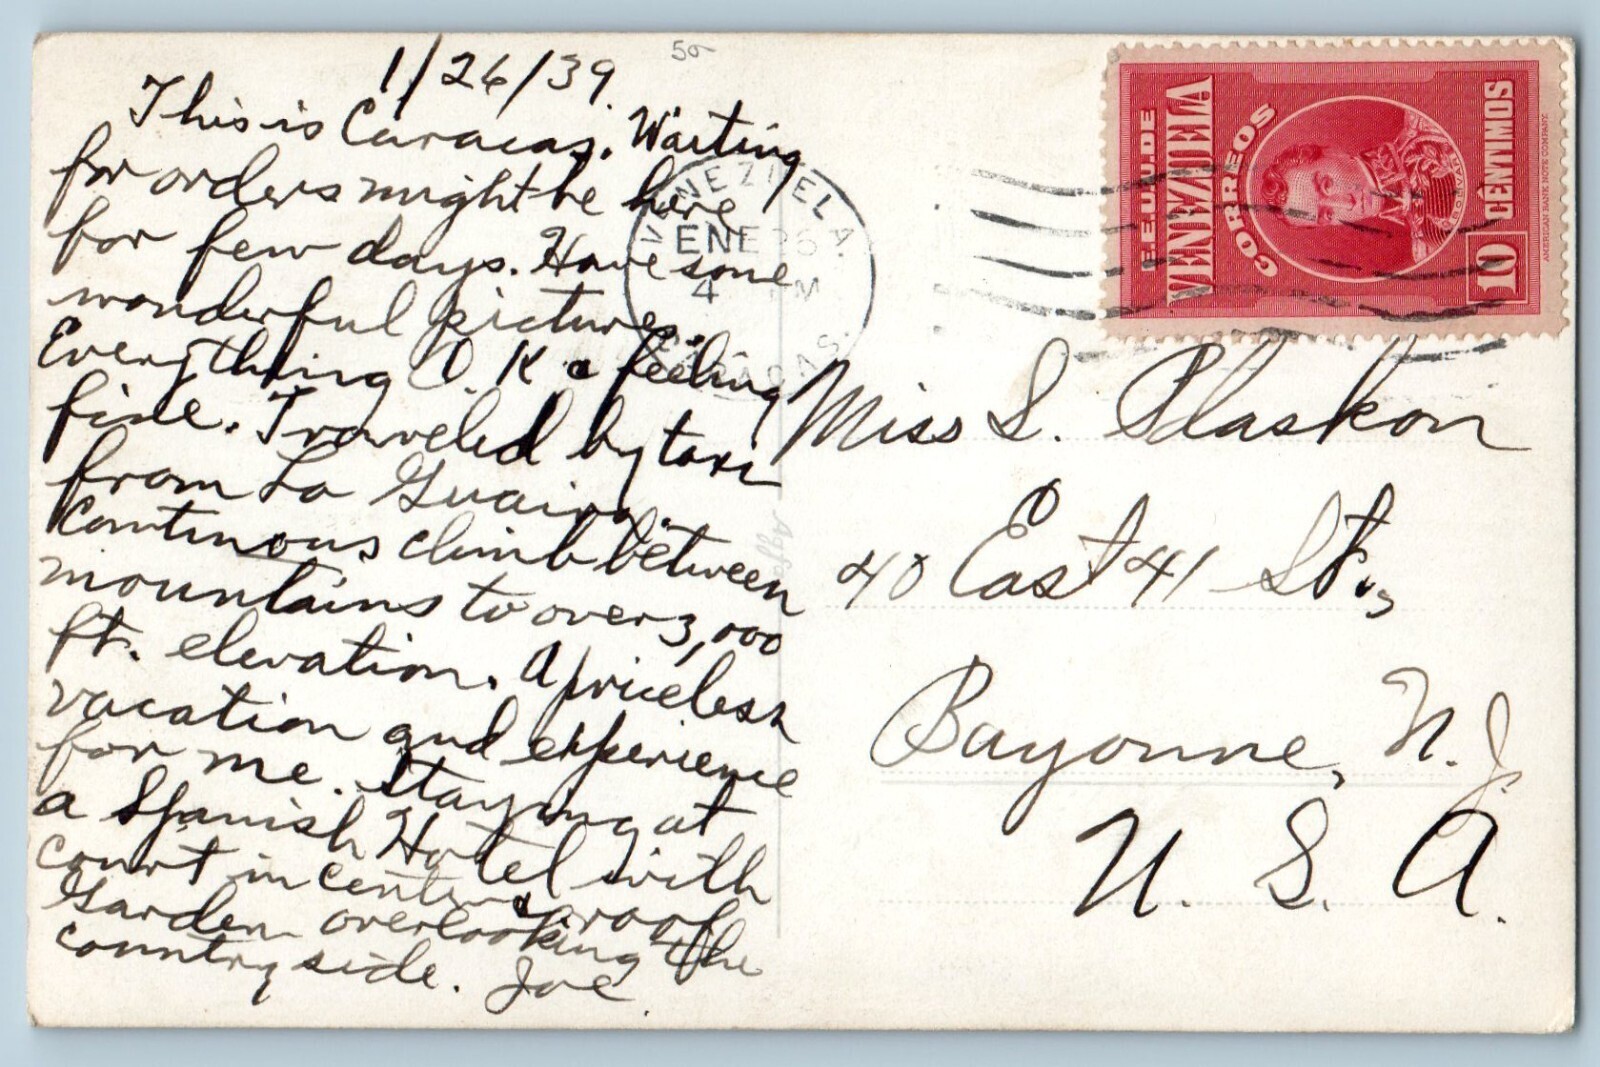 1/26/39.
This is Caracas. Waiting
for orders might be here
for few days. Have some
wonderful pictures.
Everything O.K. & feeling
fine. Traveled by taxi
from La Guaira.
Continous climb between
mountains to over 3,000
ft. elevation. A priceless
vacation and experience
for me. Staying at
a Spanish Hotel with
court in center & roof
Garden overlooking the
country side. Joe
50
VENEZUELA.
ENE 26
4 PM
CARACAS.
E.E.U.U. DE
VENEZUELA
CORREOS
BOLIVAR
10 CÉNTIMOS
AMERICAN BANK NOTE COMPANY
Miss S. Plaskon
40 East 41 St.,
Bayonne, N.J.
U.S.A.